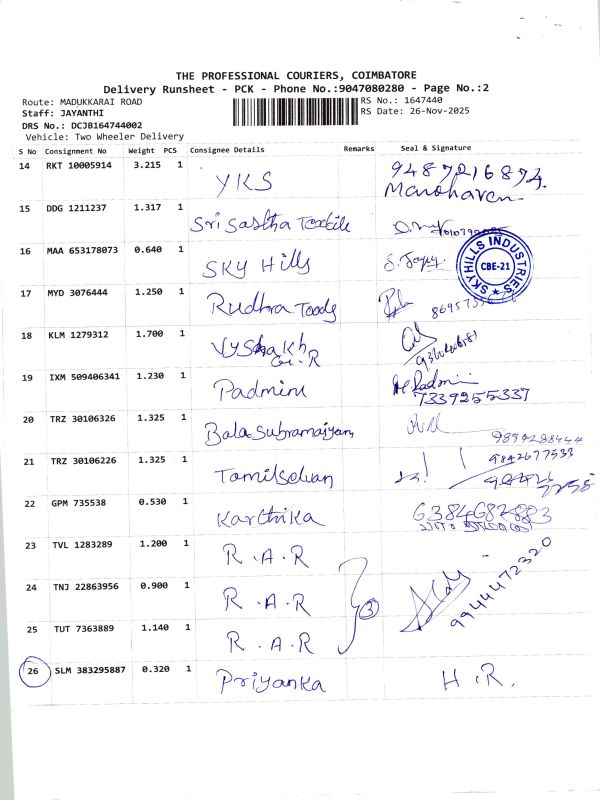 THE PROFESSIONAL COURIERS, COIMBATORE
Delivery Runsheet - PCK - Phone No.:9047080280 - Page No.:2
Route: MADUKKARAI ROAD RS No.: 1647440
Staff: JAYANTHI RS Date: 26-Nov-2025
DRS No.: DCJB164744002
Vehicle: Two Wheeler Delivery
S No Consignment No Weight PCS Consignee Details Remarks Seal & Signature
14 RKT 10005914 3.215 1 YKS
Manoharan
15 DDG 1211237 1.317 1 Sri Sastha Textile
16 MAA 653178073 0.640 1 SKY Hills
SKYHILLS INDUSTRIES CBE-21
17 MYD 3076444 1.250 1 Rudhra Toods
18 KLM 1279312 1.700 1 Vyshakh
G.R
19 IXM 509406341 1.230 1 Padmini
7339255337
20 TRZ 30106326 1.325 1 Bala Subramaiyan
21 TRZ 30106226 1.325 1 Tamilselvan
9842677533
22 GPM 735538 0.530 1 Karthika
6384682883
23 TVL 1283289 1.200 1 R.A.R
24 TNJ 22863956 0.900 1 R.A.R 3
9944472320
25 TUT 7363889 1.140 1 R.A.R
26 SLM 383295887 0.320 1 Priyanka H.R.